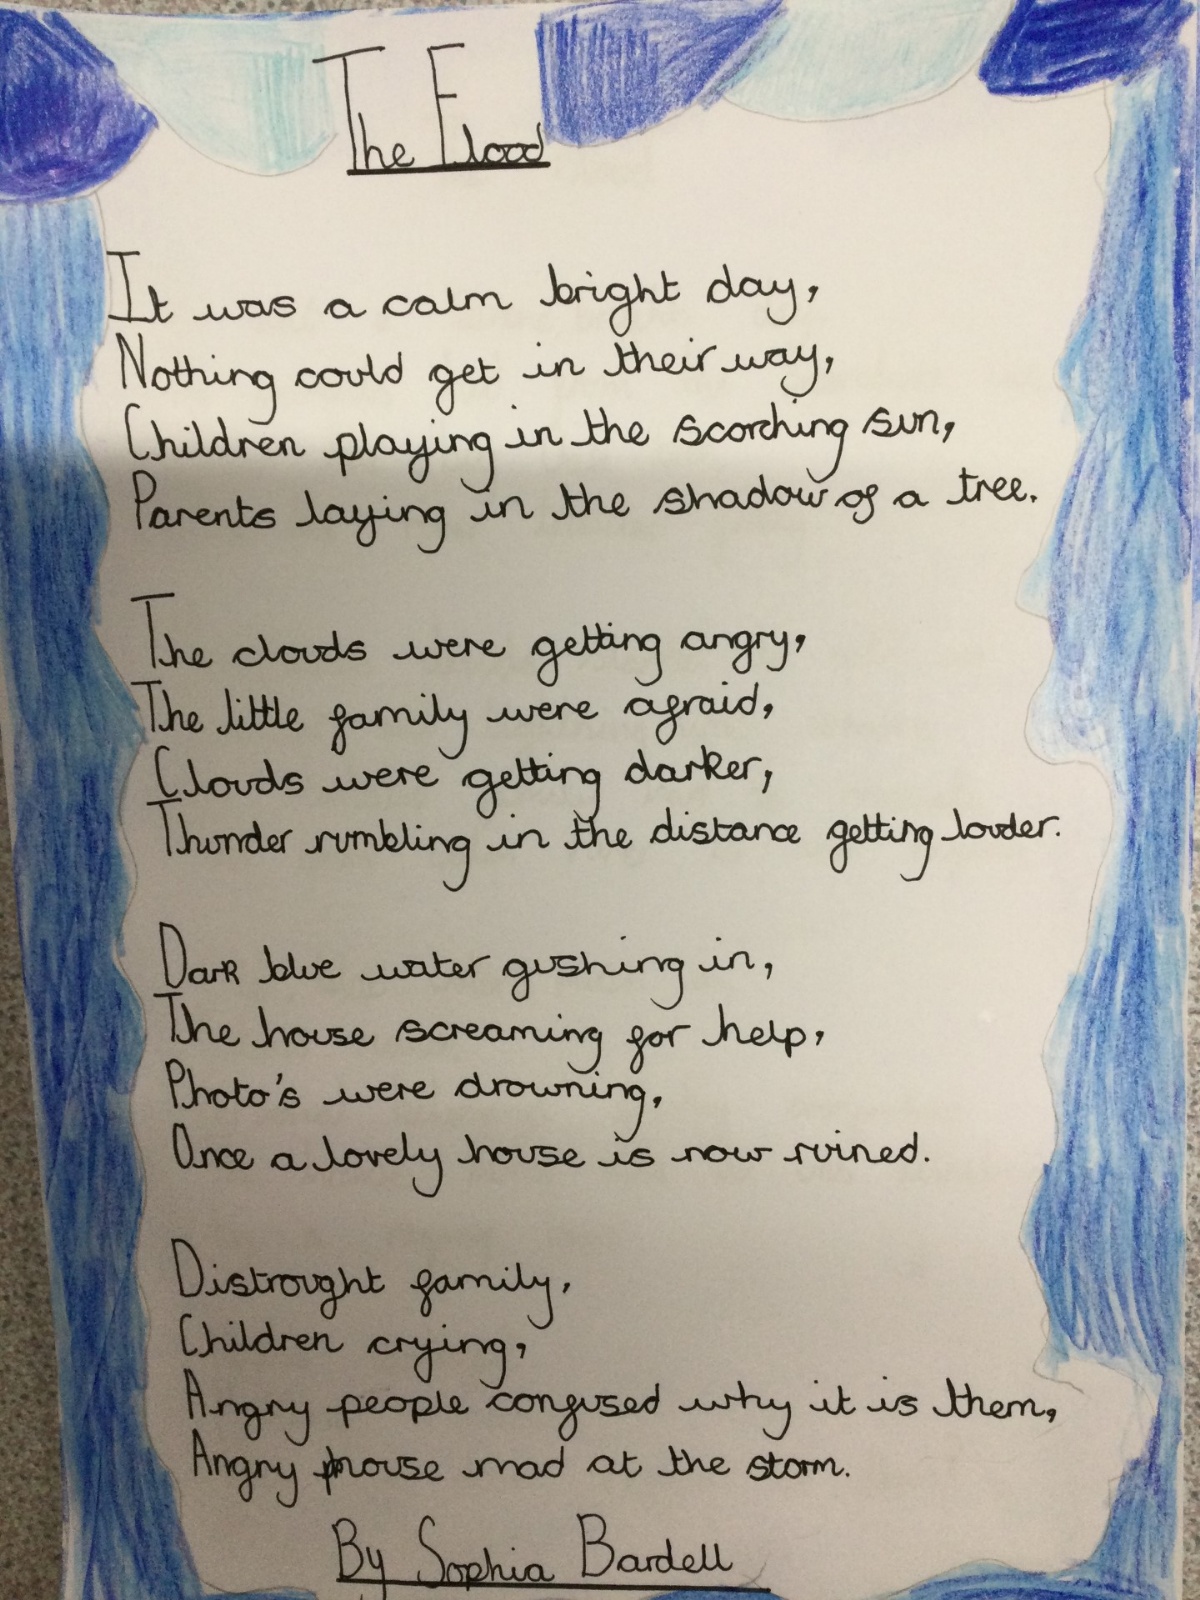 The Flood
It was a calm bright day,
Nothing could get in their way,
Children playing in the scorching sun,
Parents laying in the shadow of a tree.
The clouds were getting angry,
The little family were afraid,
Clouds were getting darker,
Thunder rumbling in the distance getting louder.
Dark blue water gushing in,
The house screaming for help,
Photo's were drowning,
Once a lovely house is now ruined.
Distrought family,
Children crying,
Angry people confused why it is them,
Angry house mad at the storm.
By Sophia Bardell